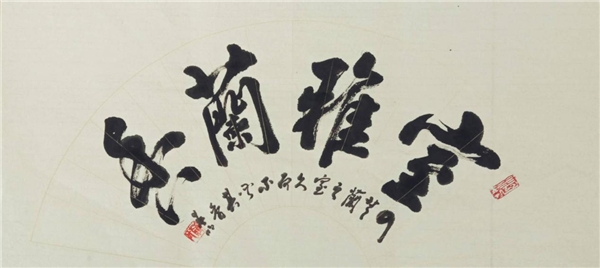 室雅蘭芳
入芝蘭之室久而不聞其香